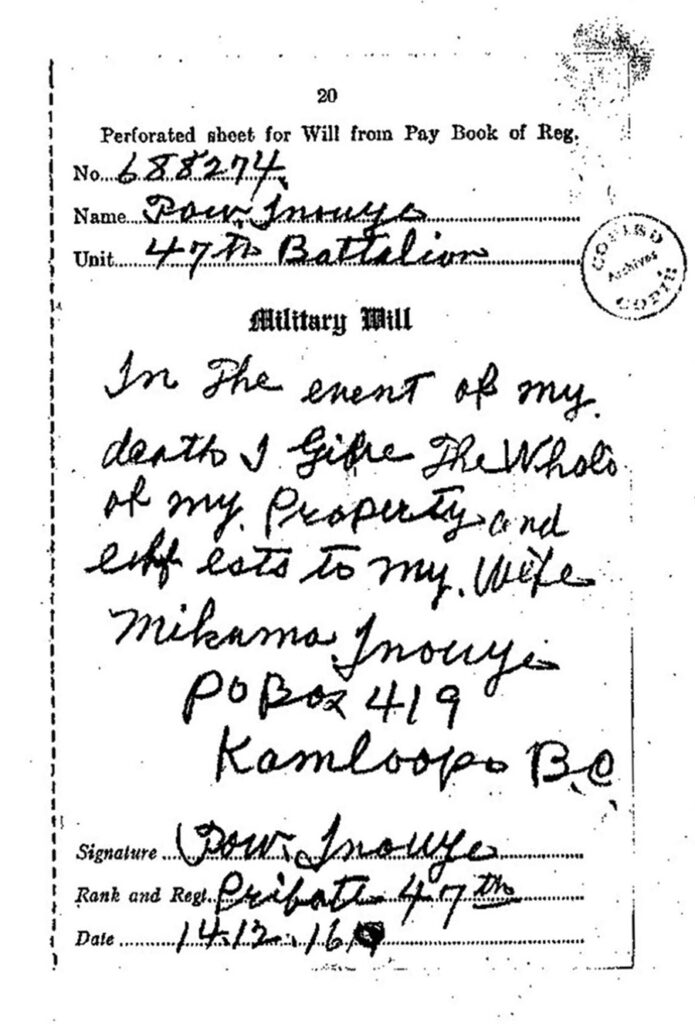 20
Perforated sheet for Will from Pay Book of Reg.
No. 688274
Name Pow. Inouye
Unit 47th Battalion
COPIED
Archives
COPIÉ
Military Will
In The event of my
death I Gifre The Whole
of my Property and
to my. Wife
Mikama Inouye
PO Box 419
Kamloops B.C
Signature Pow. Inouye
Rank and Regt. Pribate 47th
Date 14.12.16